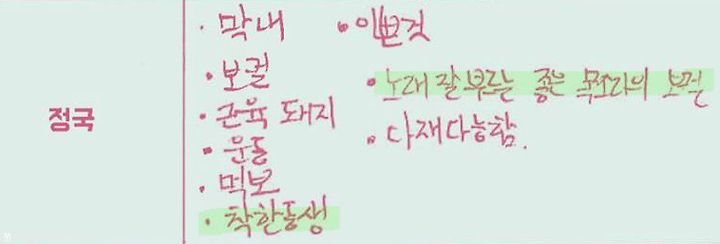 정국
· 막내
· 보컬
· 근육 돼지
· 운동
· 먹보
· 착한동생
· 이쁜것
· 노래 잘 부르는 좋은 목소리의 보컬
· 다재다능함.